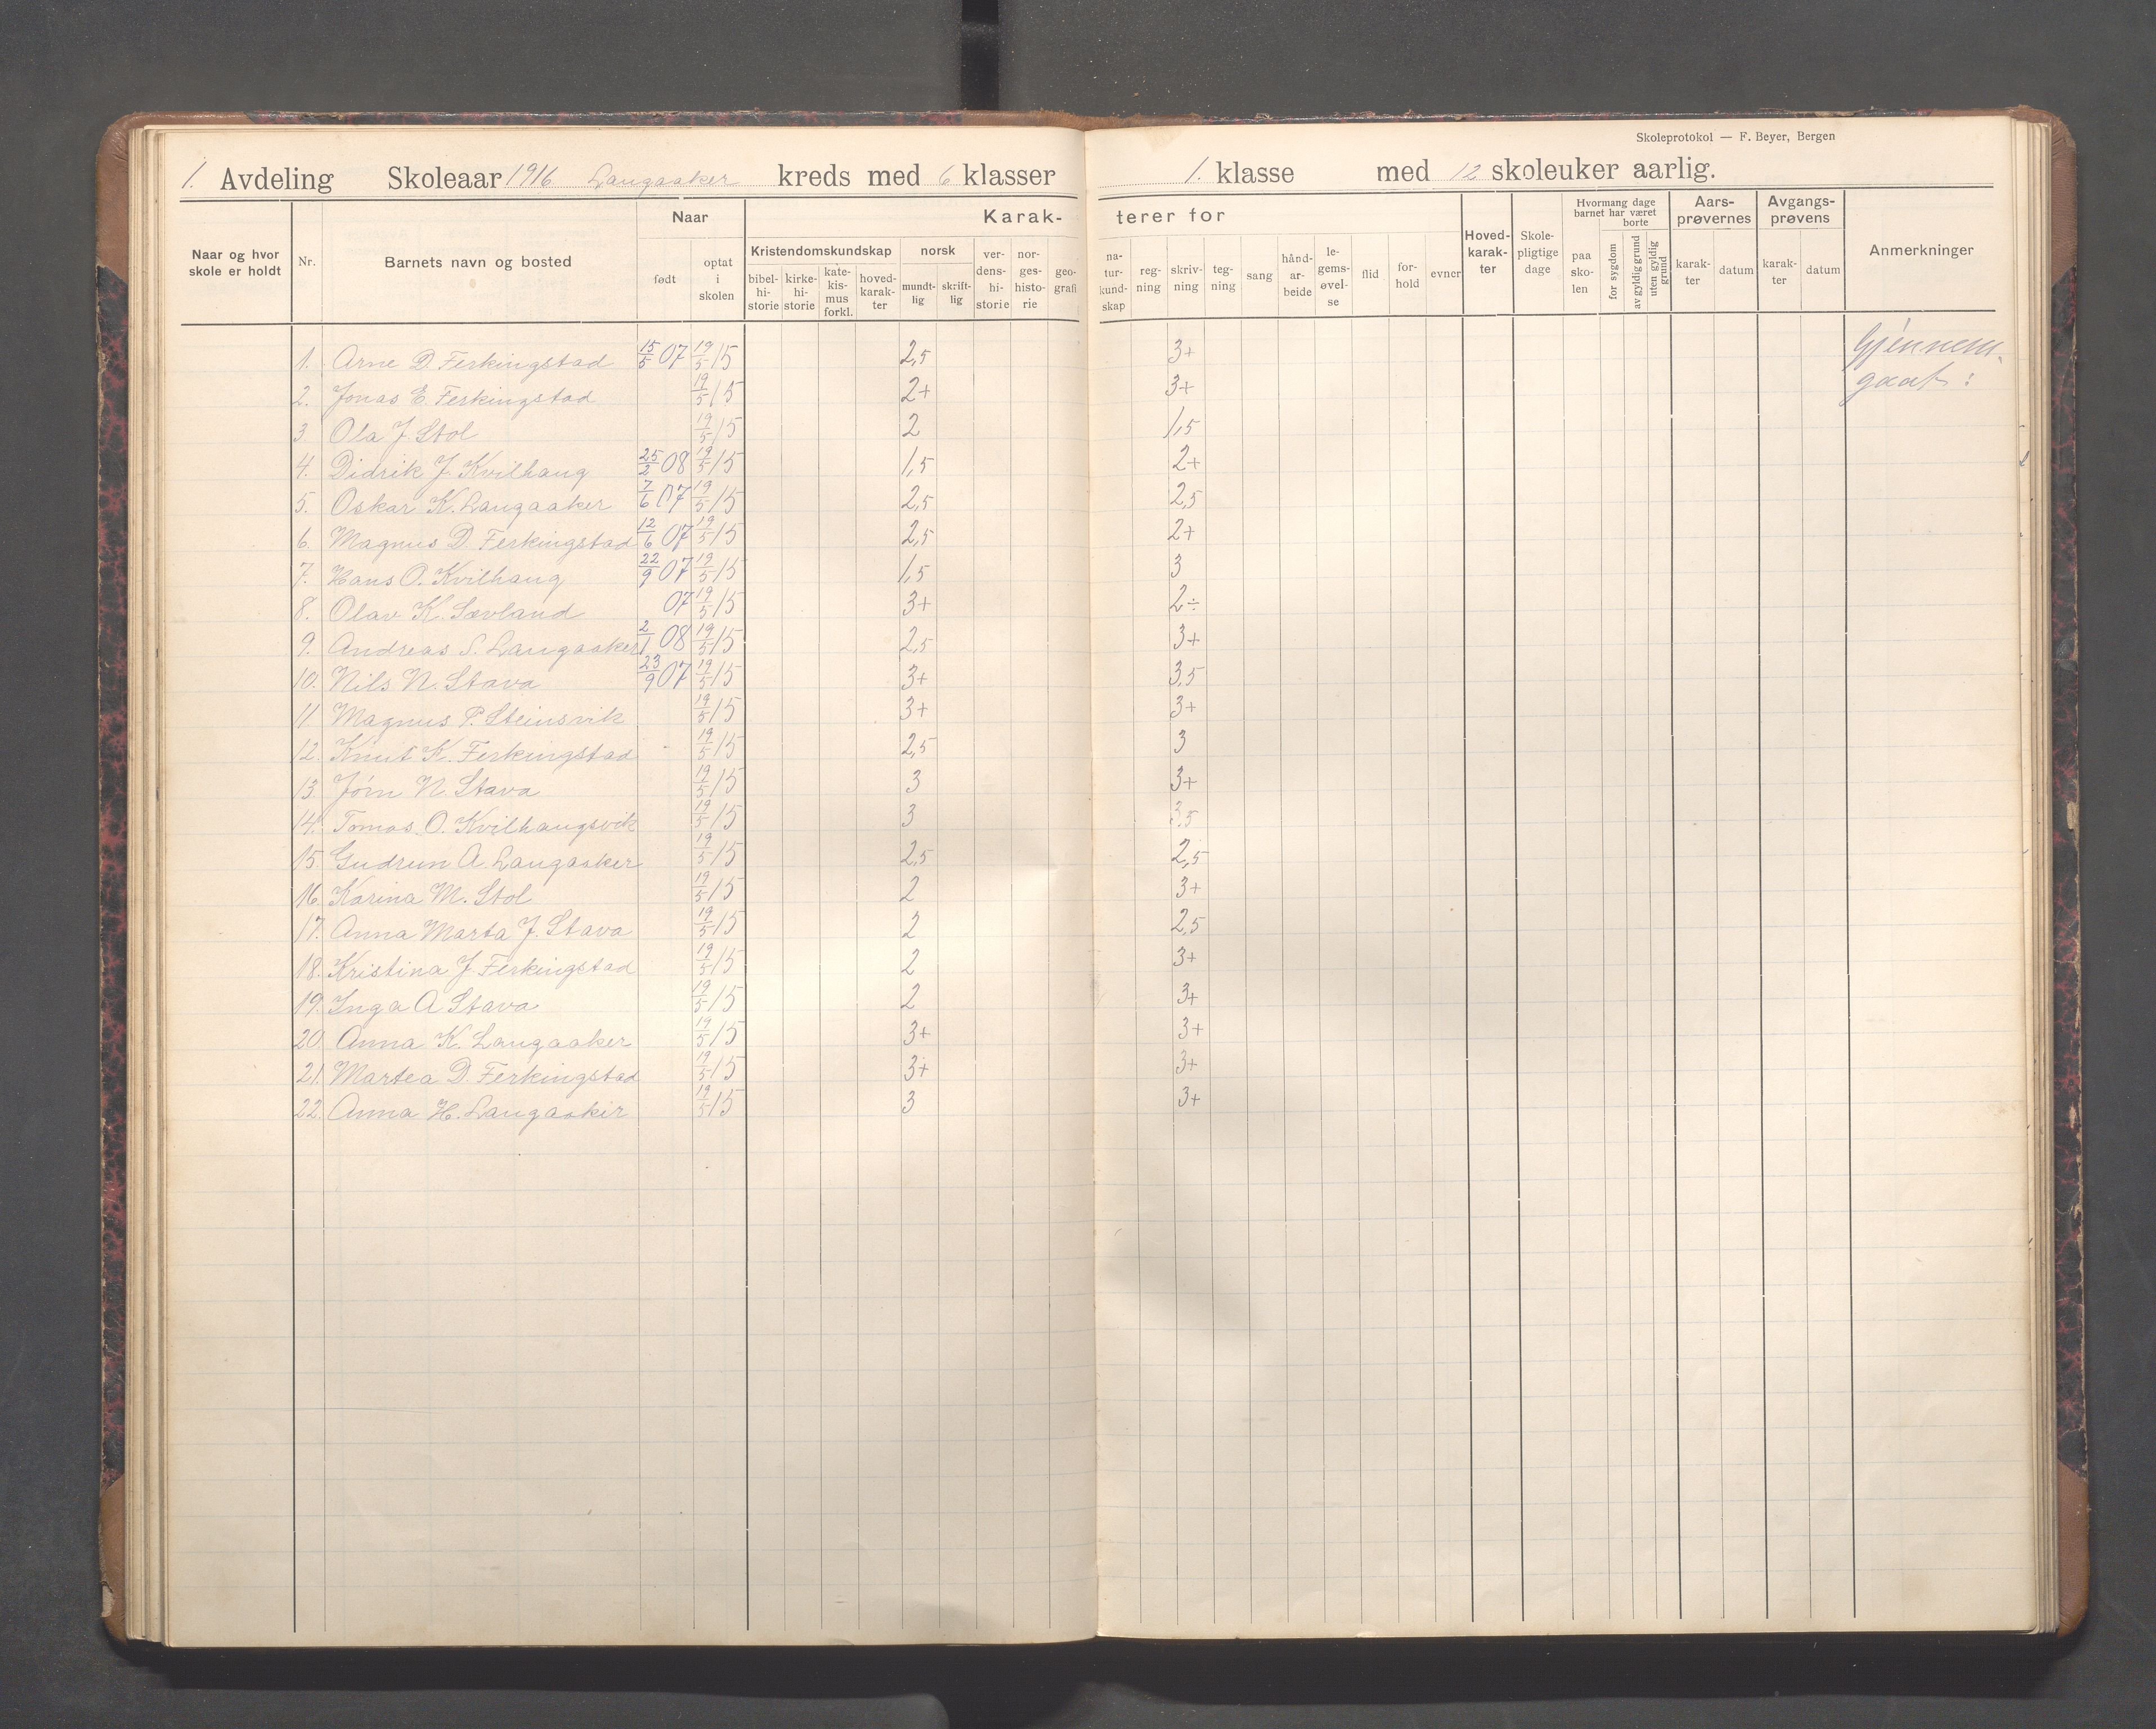 Skoleprotokol — F. Beyer, Bergen
1. Avdeling Skoleaar 1916 Langaaker kreds med 6 klasser 1. klasse med 12 skoleuker aarlig.
Naar og hvor skole er holdt
Nr.
Barnets navn og bosted
Naar
født
optat i skolen
Karak-
Kristendomskundskap
bibel-hi-storie
kirke-hi-storie
kate-kis-mus forkl.
hoved-karak-ter
norsk
mundt-lig
skrift-lig
ver-dens-hi-storie
nor-ges-histo-rie
geo-grafi
terer for
na-tur-kund-skap
reg-ning
skriv-ning
teg-ning
sang
hånd-ar-beide
le-gems-øvel-se
flid
for-hold
evner
Hoved-karak-ter
Skole-pligtige dage
Hvormang dage barnet har været
paa sko-len
borte
for sygdom
av gyldig grund
uten gyldig grund
Aars-prøvernes
karak-ter
datum
Avgangs-prøvens
karak-ter
datum
Anmerkninger
1. Arne D. Ferkingstad 15/5 07 19/5 15 2,5 3+ Gjennem-
2. Jonas E. Ferkingstad 19/5 15 2+ 3+ gaat:
3. Ola J. Stol 19/5 15 2 1,5
4. Didrik J. Kvilhaug 25/2 08 19/5 15 1,5 2+
5. Oskar K. Langaaker 7/6 07 19/5 15 2,5 2,5
6. Magnus D. Ferkingstad 12/6 07 19/5 15 2,5 2+
7. Hans O. Kvilhaug 22/9 07 19/5 15 1,5 3
8. Olav K. Sævland 07 19/5 15 3+ 2÷
9. Andreas S. Langaaker 2/1 08 19/5 15 2,5 3+
10. Nils N. Stava 23/9 07 19/5 15 3+ 3,5
11. Magnus P. Steinsvik 19/5 15 3+ 3+
12. Knut K. Ferkingstad 19/5 15 2,5 3
13. Jørn N. Stava 19/5 15 3 3+
14. Tomas O. Kvilhaugsvik 19/5 15 3 3,5
15. Gudrun A. Langaaker 19/5 15 2,5 2,5
16. Karina M. Stol 19/5 15 2 3+
17. Anna Marta J. Stava 19/5 15 2 2,5
18. Kristina J. Ferkingstad 19/5 15 2 3+
19. Inga A Stava 19/5 15 2 3+
20. Anna K. Langaaker 19/5 15 3+ 3+
21. Martea D. Ferkingstad 19/5 15 3+ 3+
22. Anna H. Langaaker 19/5 15 3 3+